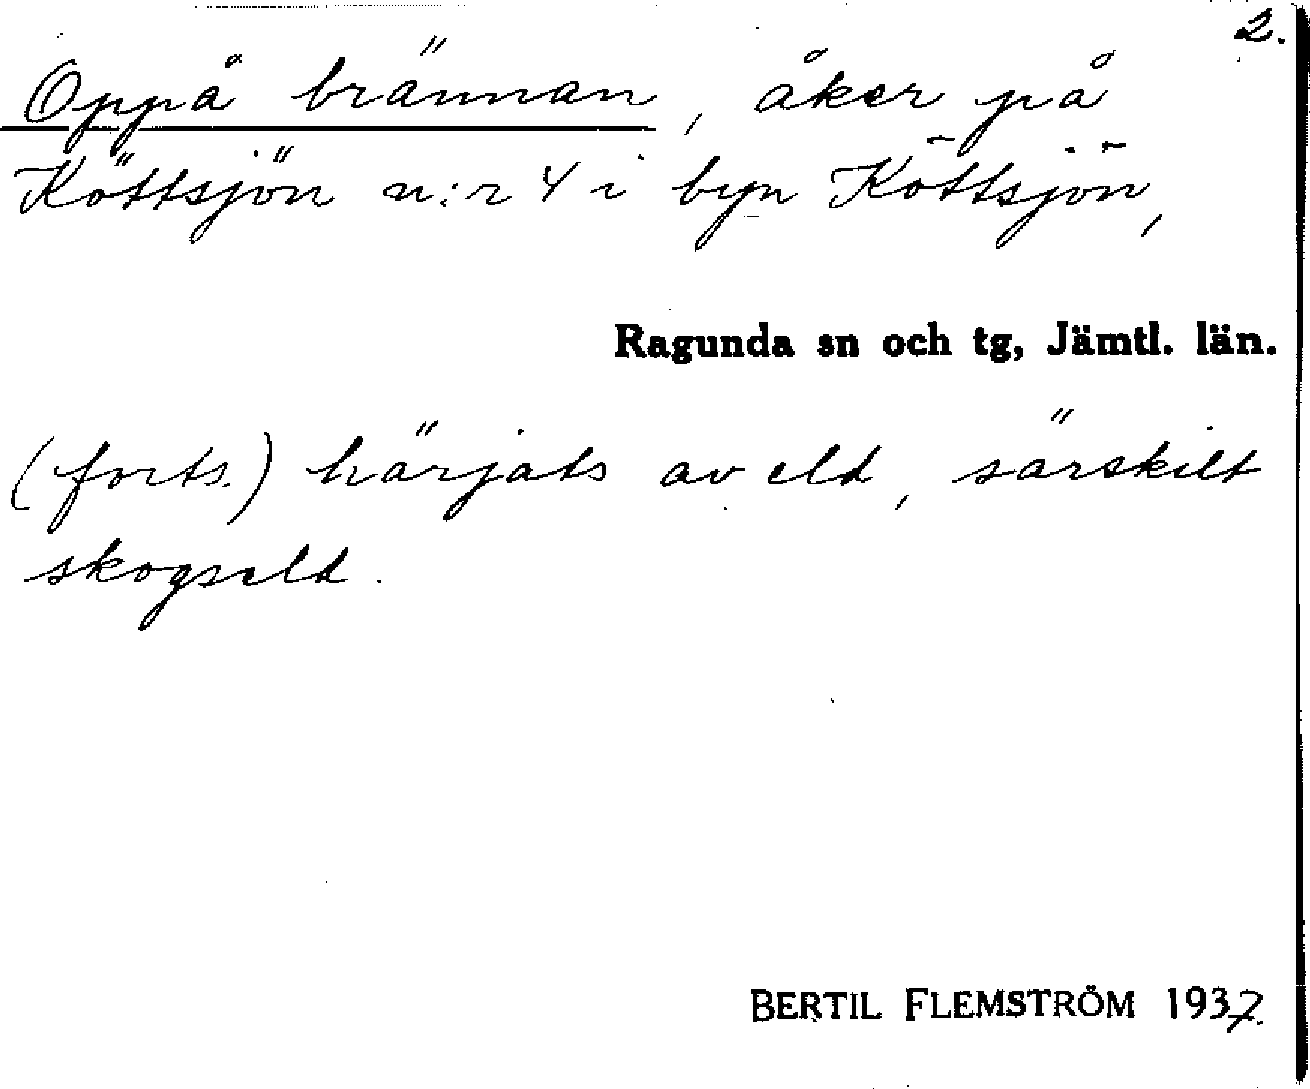 2.
Oppå brännan, åker på
Köttsjön n:r 4 i byn Köttsjön,
Ragunda sn och tg, Jämtl. län.
(forts.) härjats av eld, särskilt
skogseld.
BERTIL FLEMSTRÖM 1937.